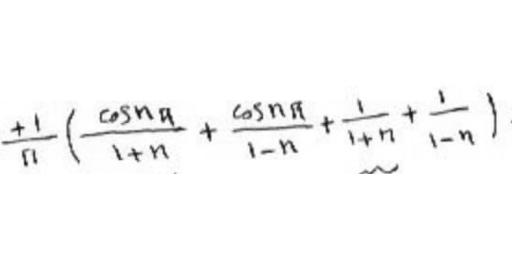 +1/π ( cosnπ/1+n + cosnπ/1-n + 1/1+n + 1/1-n )